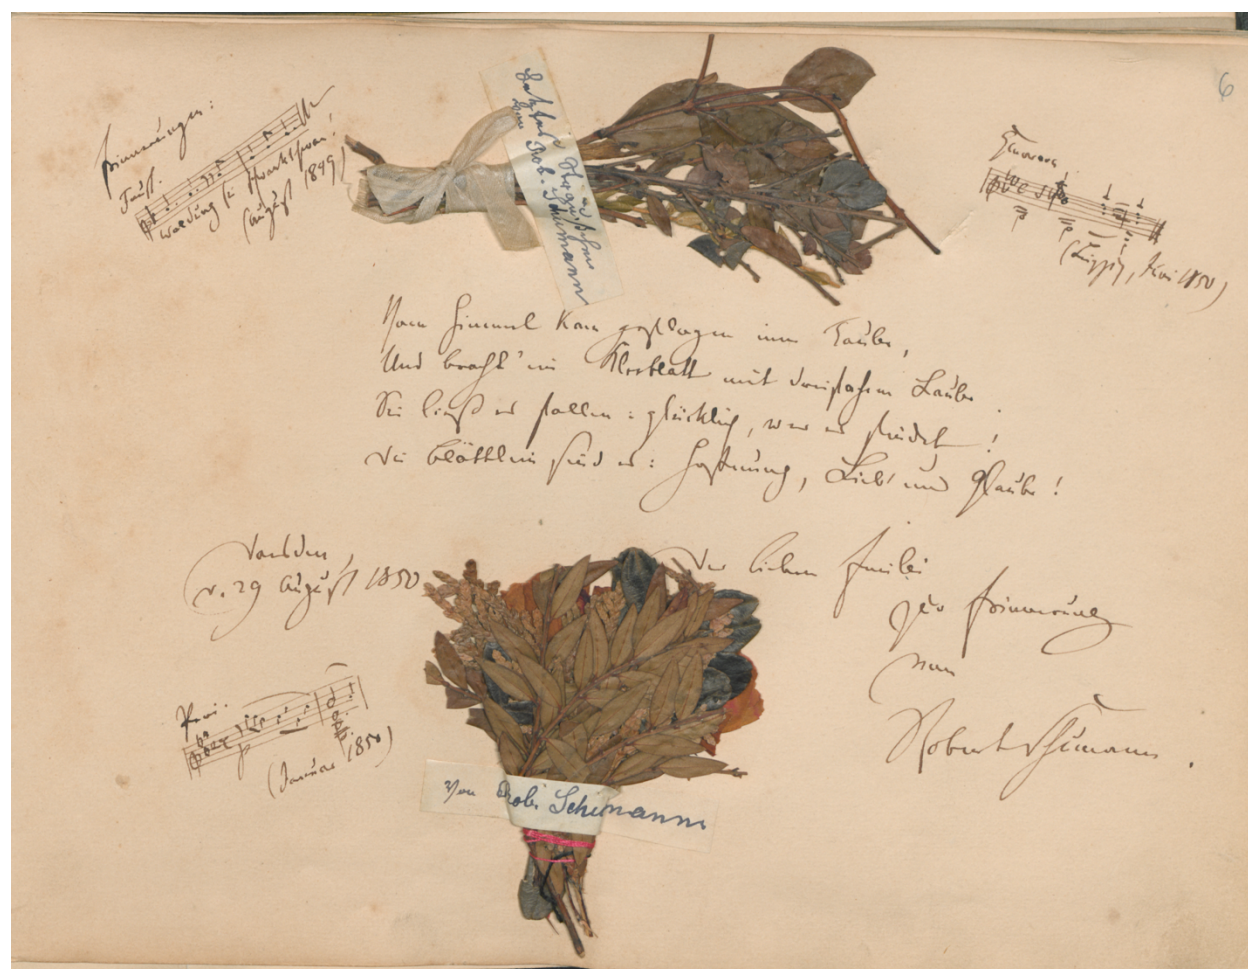 6
Erinnerungen:
Faust.
Waldung sie schwankt heran!
(August 1849)
Letztes
von Rob. Schumann
Genoveva
(Leipzig, Mai 1850)
Vom Himmel kam geflogen eine Taube,
Und bracht' ein Kleeblatt mit dreifachem Laube
Sie ließ es fallen: glücklich, wer es findet!
Drei Blättlein sind es: Hoffnung, Lieb' und Glaube!
Dresden,
d. 29 August 1850
Der lieben Emilie
zur Erinnerung
von
Robert Schumann.
(Januar 1850)
Von Rob. Schumann